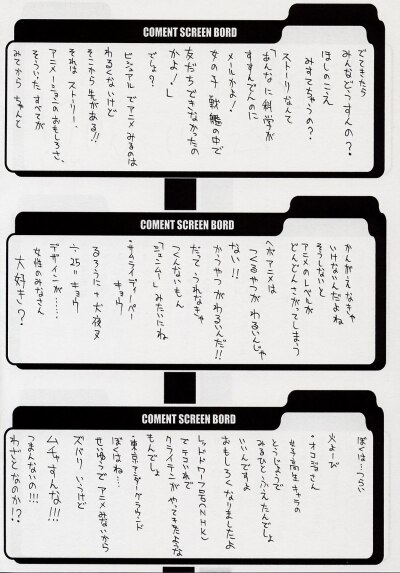 COMENT SCREEN BORD
でてきたら
みんなどうすんの？・
ほしのこえ
みすてちゃうの？・
ストーリなんて
「あんなに科学が
すすんでんのに
メールかよ！
女の子戦艦の中で
友だちできなかったの
かよ！」
でしょ？
ビジュアルでアニメみるのは
わるくないけど
そこから先がある!!
それはストーリー、
アニメーションのおもしろさ、
そういたすべてが
みてから ちゃんと
COMENT SCREEN BORD
かんがえなきゃ
いけないんだよね
そうしないと
アニメのレベルが
どんどんさがってしまう
ヘボアニメは
つくるやつがわるいんじゃ
ない!!
かうやつがわるいんだ!!
だってうれなきゃ
つくんないもん
「ジェニムー」みたいにね
・サムライディーパー
キョウ
るろうに+犬夜叉
÷25＝キョウ
デザインが……
女性のみなさん
大好き？
COMENT SCREEN BORD
ぼくは…つらい
火よーび
・オコジョさん
女子高生キャラの
とうじょうで
みるひとふえたんでしょ
いいんですよ
おもしろくなりましたよ
レッドドワーフ号(NHK)
にテコいれで
クライテンがやってきたような
もんでしょ
・東京アンダーグラウンド
ぼくはね…
せいゆうでアニメみないから
ズバリいうけど
ムチャすんな!!!
つまんないの!!!
わざとなのか!?